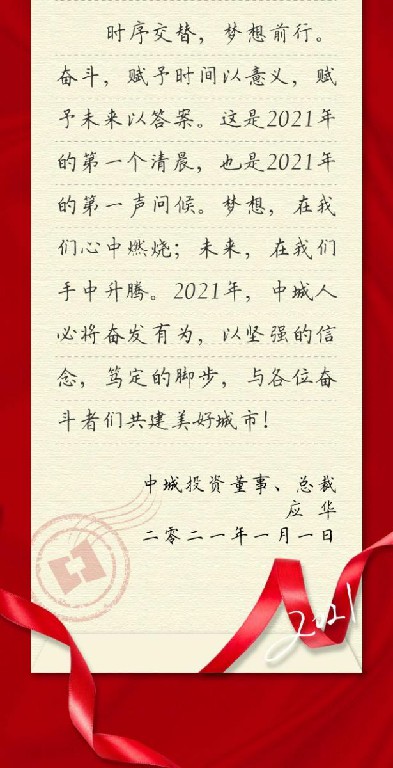 时序交替，梦想前行。
奋斗，赋予时间以意义，赋
予未来以答案。这是2021年
的第一个清晨，也是2021年
的第一声问候。梦想，在我
们心中燃烧；未来，在我们
手中升腾。2021年，中城人
必将奋发有为，以坚强的信
念，笃定的脚步，与各位奋
斗者们共建美好城市！
中城投资董事、总裁
应 华
二零二一年一月一日
2021